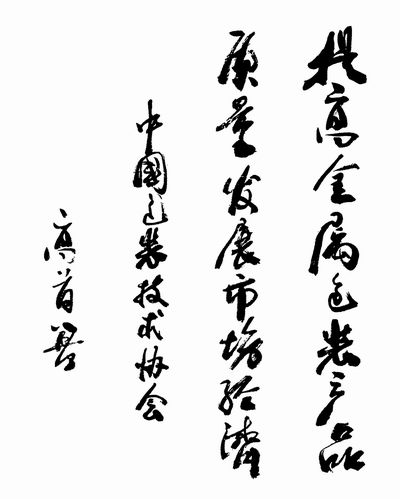 提高金属包装产品
质量发展市场经济
中國包装技术协会
高首善